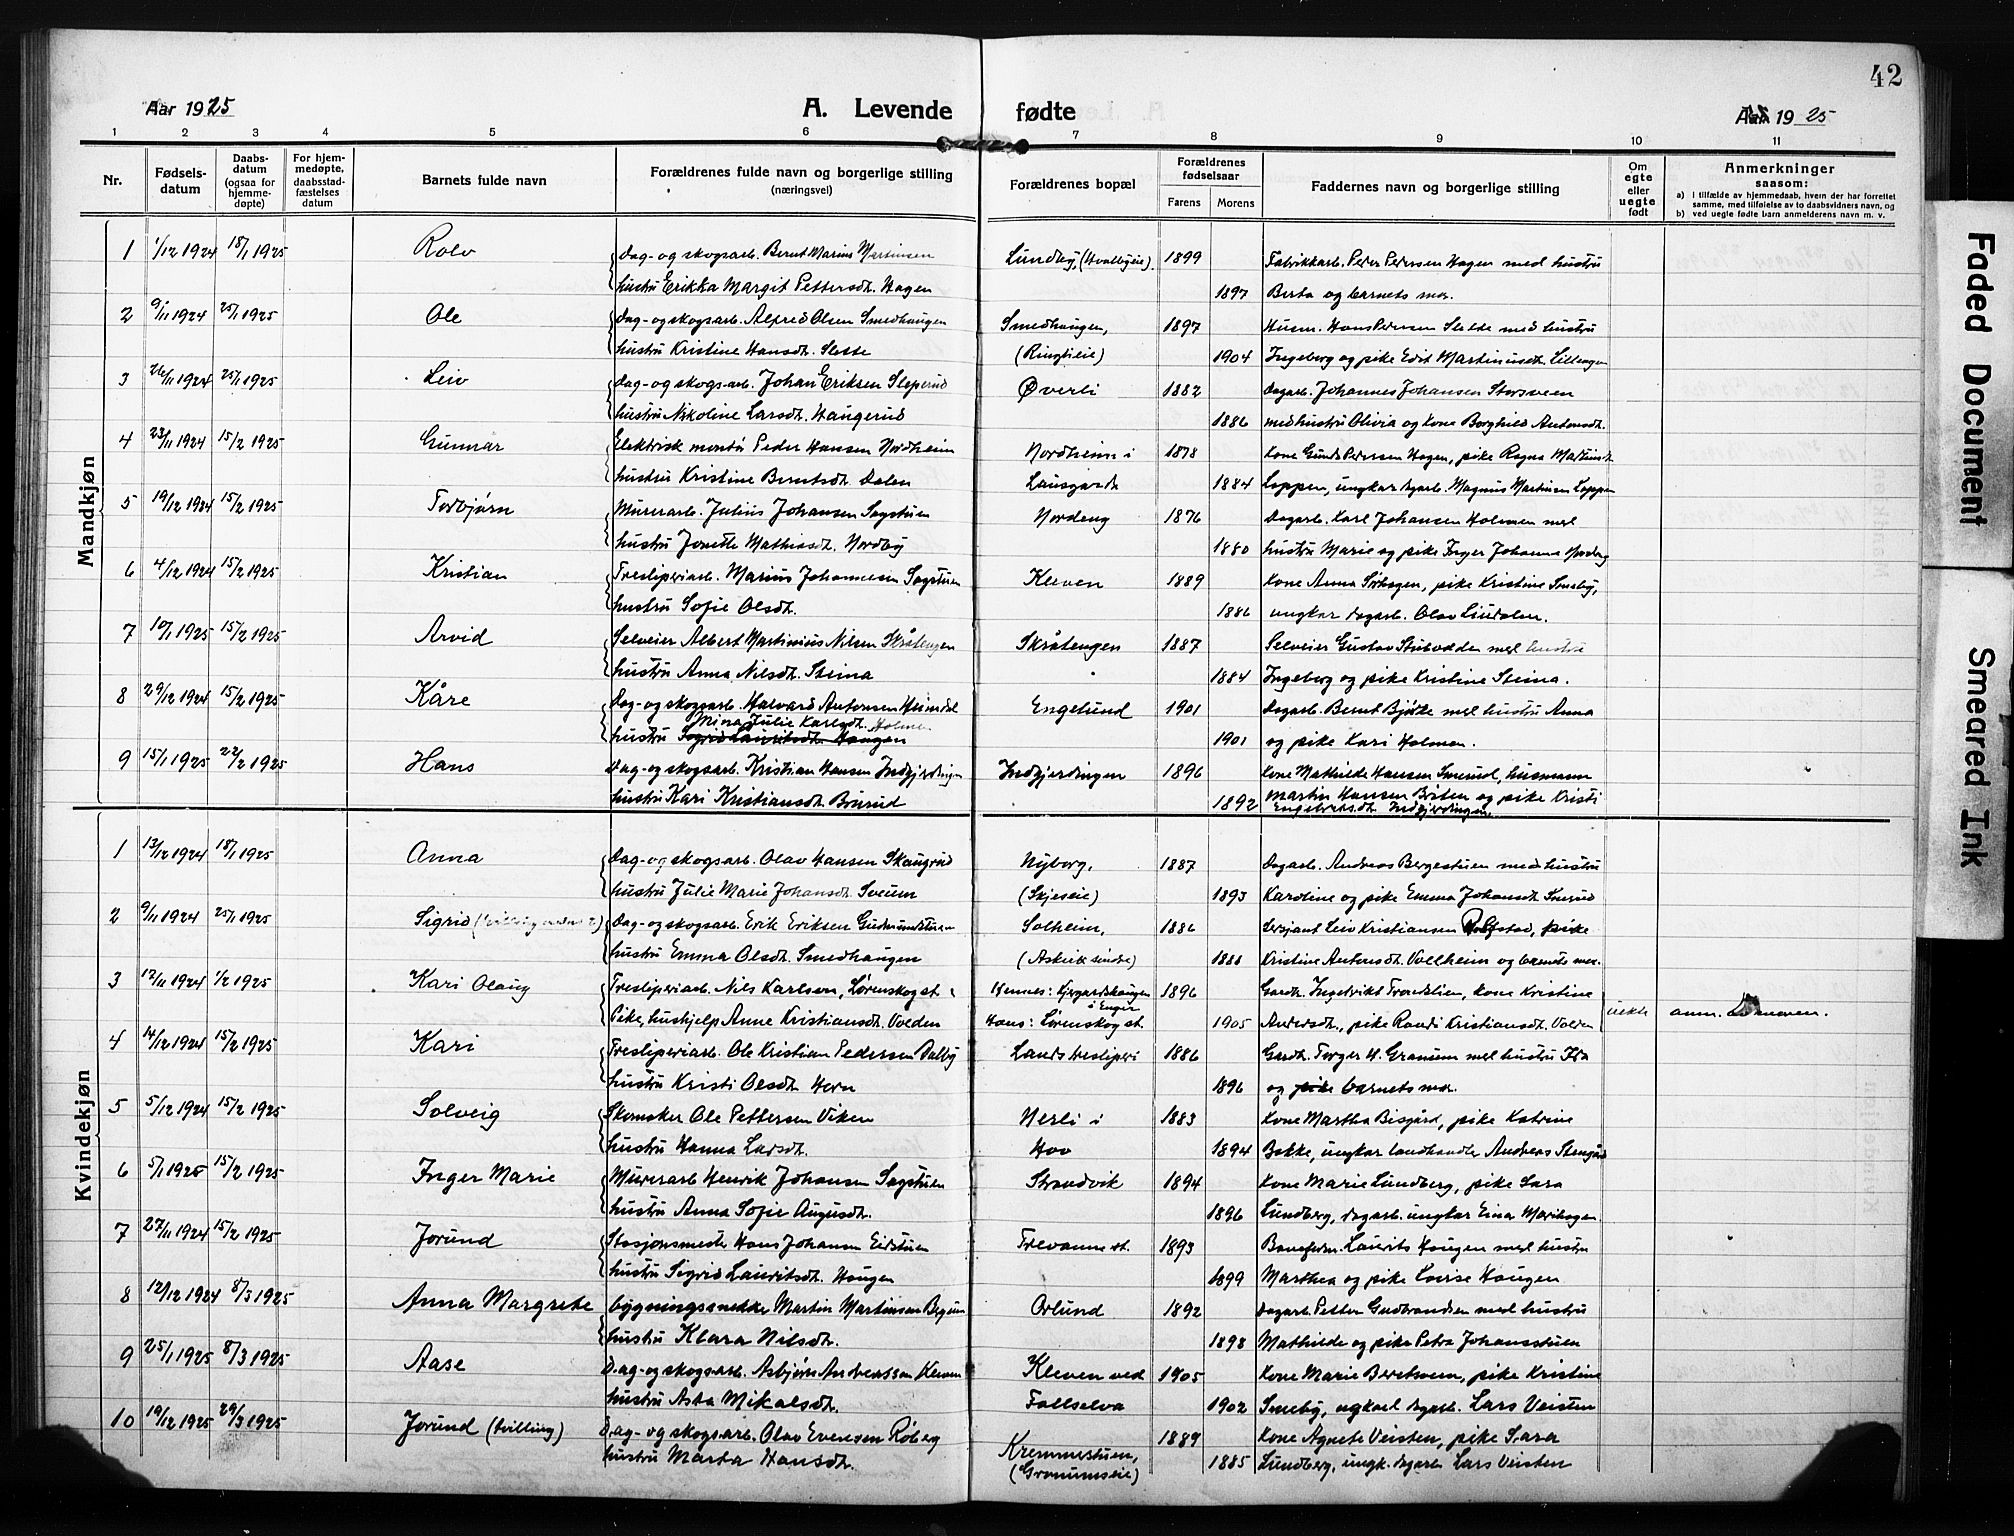 42
Aar 1925 A. Levende fødte Aar 1925
1 2 3 4 5 6 7 8 9 10 11
Nr. Fødsels-datum Daabs-datum (ogsaa for hjemme-døpte) For hjem-medøpte, daabsstad-fæstelses datum Barnets fulde navn Forældrenes fulde navn og borgerlige stilling (næringsvei) Forældrenes bopæl Forældrenes fødselsaar Farens Morens Faddernes navn og borgerlige stilling Om egte eller uegte født Anmerkninger saasom:
a) I tilfælde av hjemmedaab, hvem der har forrettet samme, med tilføielse av to daabsvidners navn, og
b) ved uegte fødte barn anmelderens navn m. v.
Mandkjøn
1 1/12 1924 18/1 1925 Rolv Dag- og skogsarb. Bernt Marius Martinsen Lundby, (Hvalbyeie). 1899 Fabrikkarb. Peder Pedersen Hagen med hustru
hustru Erikka Margit Pettersdt. Hagen 1897 Berta og barnets mor.
2 9/11 1924 25/1 1925 Ole Dag- og skogsarb. Alfred Olsen Smedhaugen Smedhaugen, 1897 Husm. Hans Pedersen Slette med hustru
hustru Kristine Hansdt. Slette (Ringlieie) 1904 Ingeborg og pike Edit Martinusdt. Lillengen
3 26/11 1924 25/1 1925 Leiv Dag- og skogsarb. Johan Eriksen Sleperud Øverli 1882 Dagarb. Johannes Johansen Storsveen
hustru Nikoline Larsdt. Haugerud 1886 med hustru Olivia og kone Borghild Antonsdt.
4 23/11 1924 15/2 1925 Gunnar Elektrisk montør Peder Hansen Nordheim Nordheim i 1878 Kone Gunda Pedersen Hagen, pike Ragna Martinsdt.
hustru Kristine Berntsdt. Dalen Lausgarda 1884 Loppen, ungkar dagarb. Magnus Martinsen Loppen
5 19/12 1924 15/2 1925 Torbjørn Murerarb. Julius Johansen Sagstuen Nordeng 1876 Dagarb. Karl Johansen Holmen med
hustru Jonette Mathiasdt. Nordby 1880 hustru Marie og pike Inger Johanne Nordeng
6 4/12 1924 15/2 1925 Kristian Tresliperiarb. Marius Johannesen Sagstuen Kleven 1889 Kone Anna Sørhagen, pike Kristine Smeby,
hustru Sofie Olsdt. 1886 ungkar dagarb. Olav Lindalen.
7 10/1 1925 15/2 1925 Arvid Selveier Albert Martinius Nilsen Skråtengen Skråtengen 1887 Selveier Gustav Stubødden med hustru
hustru Anna Nilsdt. Steina 1884 Ingeborg og pike Kristine Steina.
8 29/12 1924 15/2 1925 Kåre Dag- og skogsarb. Halvard Antonsen Heimdal Engelund 1901 Dagarb. Bernt Bjørke med hustru Anna
Mina Julie Karlsdt. Holmen
hustru Sigrid Lauritsdt. Haugen 1901 og pike Kari Holmen.
9 15/1 1925 22/2 1925 Hans Dag- og skogsarb. Kristian Hansen Indgjerdingen Indgjerdingen 1896 Kone Mathilde Hansen Smerud, husmann
hustru Kari Kristiansdt. Brurud 1892 Martin Hansen Bråten og pike Kristi
Engebretsdt. Indgjerdingen.
Kvindekjøn
1 13/12 1924 18/1 1925 Anna Dag- og skogsarb. Olav Hansen Skaugrud Nyborg, 1887 Dagarb. Andreas Bergestuen med hustru
hustru Julie Marie Johansdt. Sveum (Skjeseie) 1893 Karoline og pike Emma Johansdt. Smerud
2 9/11 1924 25/1 1925 Sigrid Dag- og skogsarb. Erik Eriksen Gudmundstuen Solheim, 1886 Sersjant Leiv Kristiansen Rolfstad, pike
hustru Emma Olsdt. Smedhaugen 1888 Kristine Antonsdt. Vollheim og barnets mor.
3 12/11 1924 1/2 1925 Kari Olaug Tresliperiarb. Nils Karlsen, Lørenskog st. Hennes: Kjergardshaugen 1896 Gardbr. Ingebrikt Trondslien, kone Kristine
i Enger
Pike, hushjelp Anne Kristiansdt. Volden Hans: Lørenskog st. 1905 Andersdt., pike Randi Kristiansdt. Volden uekte anm.
4 14/12 1924 15/2 1925 Kari Tresliperiarb. Ole Kristian Pedersen Dalby Lands tresliperi 1886 Gardbr. Torger H. Granum med hustru Ida
hustru Kristi Olsdt. Horn 1896 og pike barnets mor.
5 5/12 1924 15/2 1925 Solveig Skomaker Ole Pettersen Viken Nerli i 1883 Kone Martha Bisgård, pike Katrine
hustru Hanna Larsdt. Hov 1894 Bakke, ungkar landhandler Andreas Stengård
6 5/1 1925 15/2 1925 Inger Marie Murerarb Henrik Johansen Sagstuen Strandvik 1894 Kone Marie Lundberg, pike Sara
hustru Anna Sofie Augustdt. 1896 Lundberg, dagarb. ungkar Einar Marihagen
7 27/11 1924 15/2 1925 Jorund Stasjonsmester Hans Johansen Eidstuen Trevanne st. 1893 Baneform. Laurits Haugen med hustru
hustru Sigrid Lauritsdt. Haugen 1899 Marthea og pike Lovise Haugen
8 12/12 1924 8/3 1925 Anna Margrete bygningssnekker Martin Martinsen Bergum Orlund 1892 Dagarb. Petter Gudbrandsen med hustru
hustru Klara Nilsdt. 1898 Mathilde og pike Petra Johansstuen
9 25/1 1925 8/3 1925 Aase Dag- og skogsarb. Asbjørn Andreassen Kleven Kleven ved 1905 Kone Marie Beretsveen, pike Kristine
hustru Asta Mikalsdt. Fallselva 1902 Smeby, ungkarl dagarb. Lars Veisten
10 19/12 1925 29/3 1925 Jorund (tvilling) Dag- og skogsarb. Olav Evensen Røberg Kremmestuen, 1889 Kone Agnete Veisten, pike Sara
hustru Marta Hansdt. (Granumseie) 1885 Lundberg, ungk. dagarb Lars Veisten
Faded Document Smeared Ink